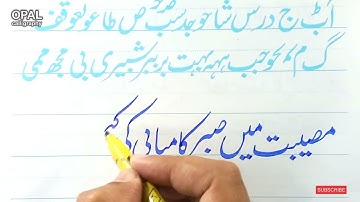 OPAL
calligraphy
ج درس شا حو جد سب ص طا عو
گ م جب بہت بر ببر شیری بی مجھ ممی
مصیبت میں صبر کامیابی کی
SUBSCRIBE